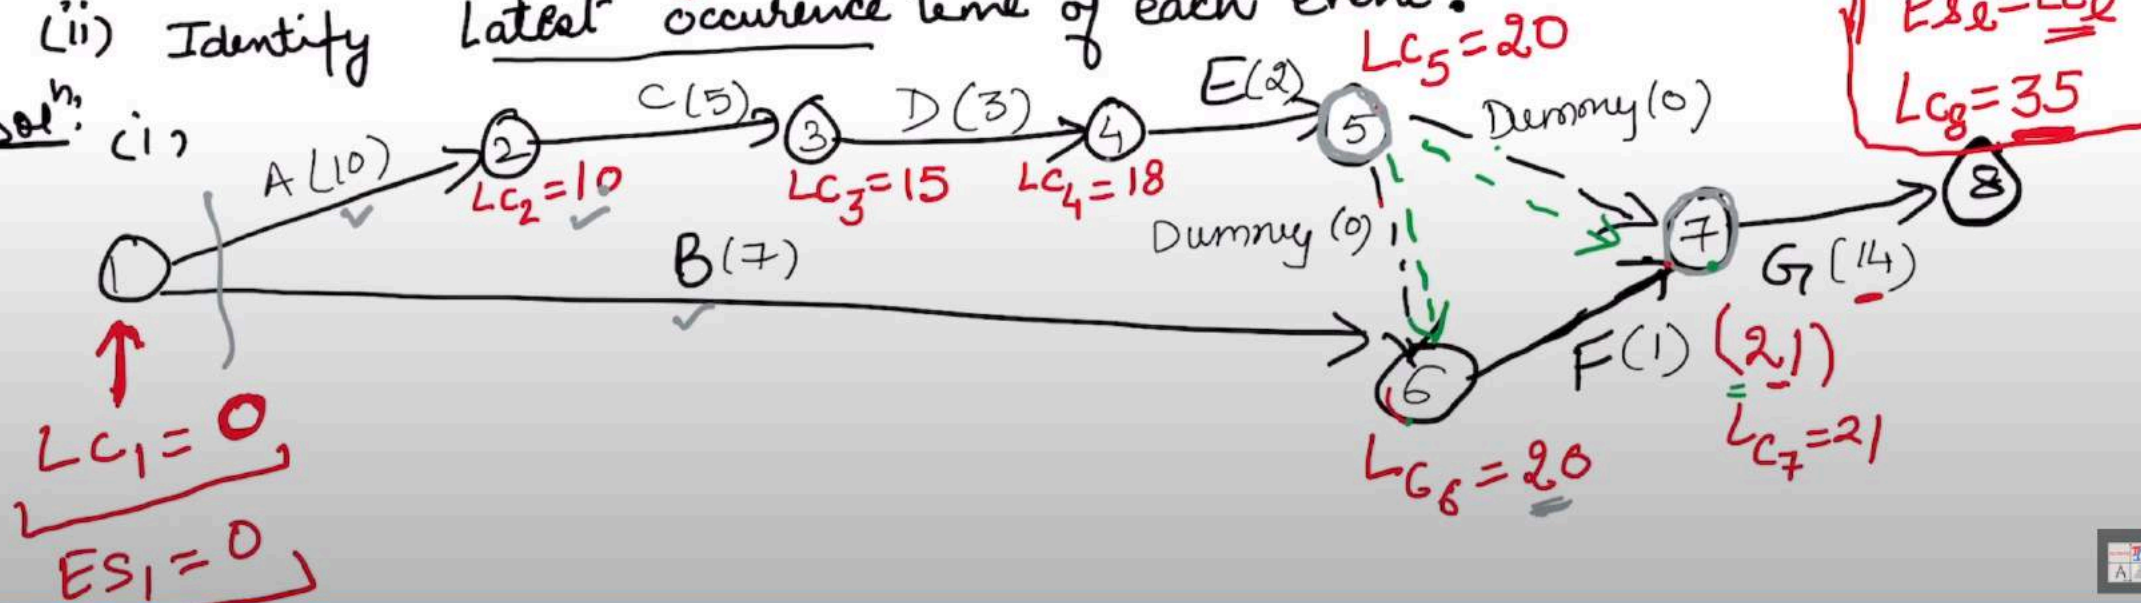 (ii) Identify Latest occurence time of each event.
Solⁿ: (i)
LC₅=20
LC₈=35
A(10)
2
C(5)
3
D(3)
4
E(2)
5
Dummy(0)
8
LC₂=10
LC₃=15
LC₄=18
Dummy(0)
7
G(14)
1
B(7)
6
F(1)
(21)
LC₇=21
LC₁=0
LC₆=20
ES₁=0